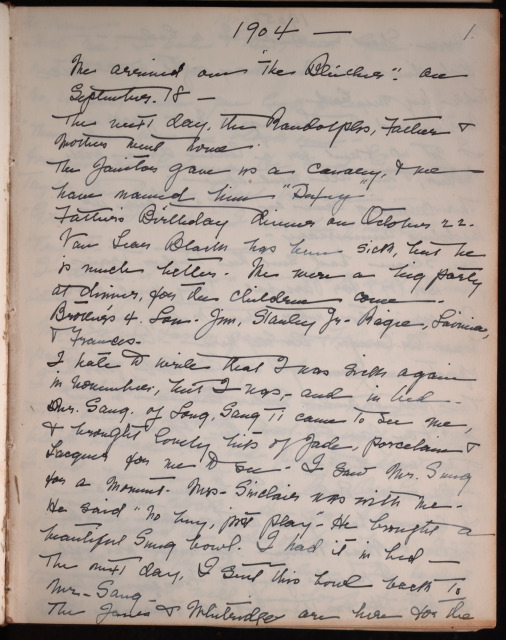 1904 — 1.
We arrived on "The Blücher" on
September 18 —
The next day, the Randolphs, Father &
Mother went home.
The Janitor gave us a canary, & we
have named him
Father's Birthday dinner on October 22.
Van Lear Black has been sick, but he
is much better. We were a big party
at dinner, for the children come.
Brothers 4. Jim, Stanley Jr. Lavinia,
& Frances.
I hate to write that I was sick again
in November, but I was, and in bed.
Mr. Sang, of Sang, Sang Ti came to see me,
& brought lovely bits of Jade, porcelain &
Lacquer for me to see. I saw Mr. Sang
for a moment. Mrs. Sinclair was with me.
He said "no buy, just play." He brought a
beautiful Sung bowl. I had it in bed —
The next day, I sent this bowl back to
Mr. Sang.
The Janes & Whitridges are here for the